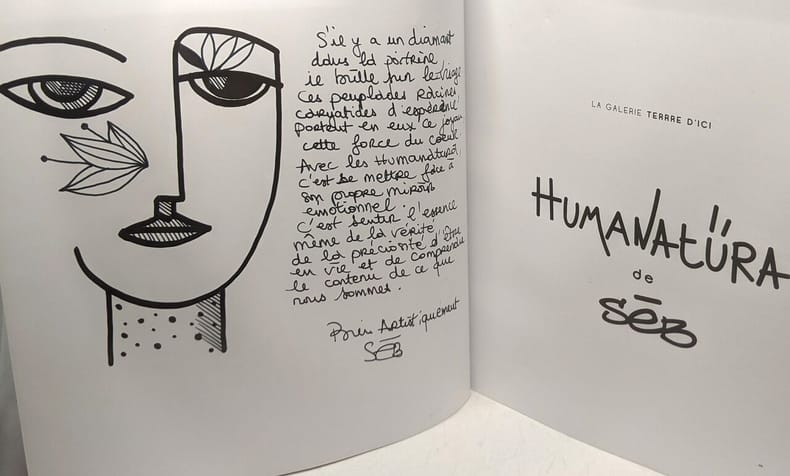 S'il y a un diamant
dans la poitrine
il brille sur le visage
Ces peuplades Racines,
caryatides d'espérance
portent en eux ce joyau
cette force du coeur.
Avec les Humanatürã,
c'est se mettre face à
son propre miroir
emotionnel.
C'est sentir l'essence
même de la vérité,
de la préciosité d'être
en vie et de comprendre
le contenu de ce que
nous sommes.
Bien Artistiquement
SēB
LA GALERIE TERRRE D'ICI
HUMANATÜRA
de
SēB